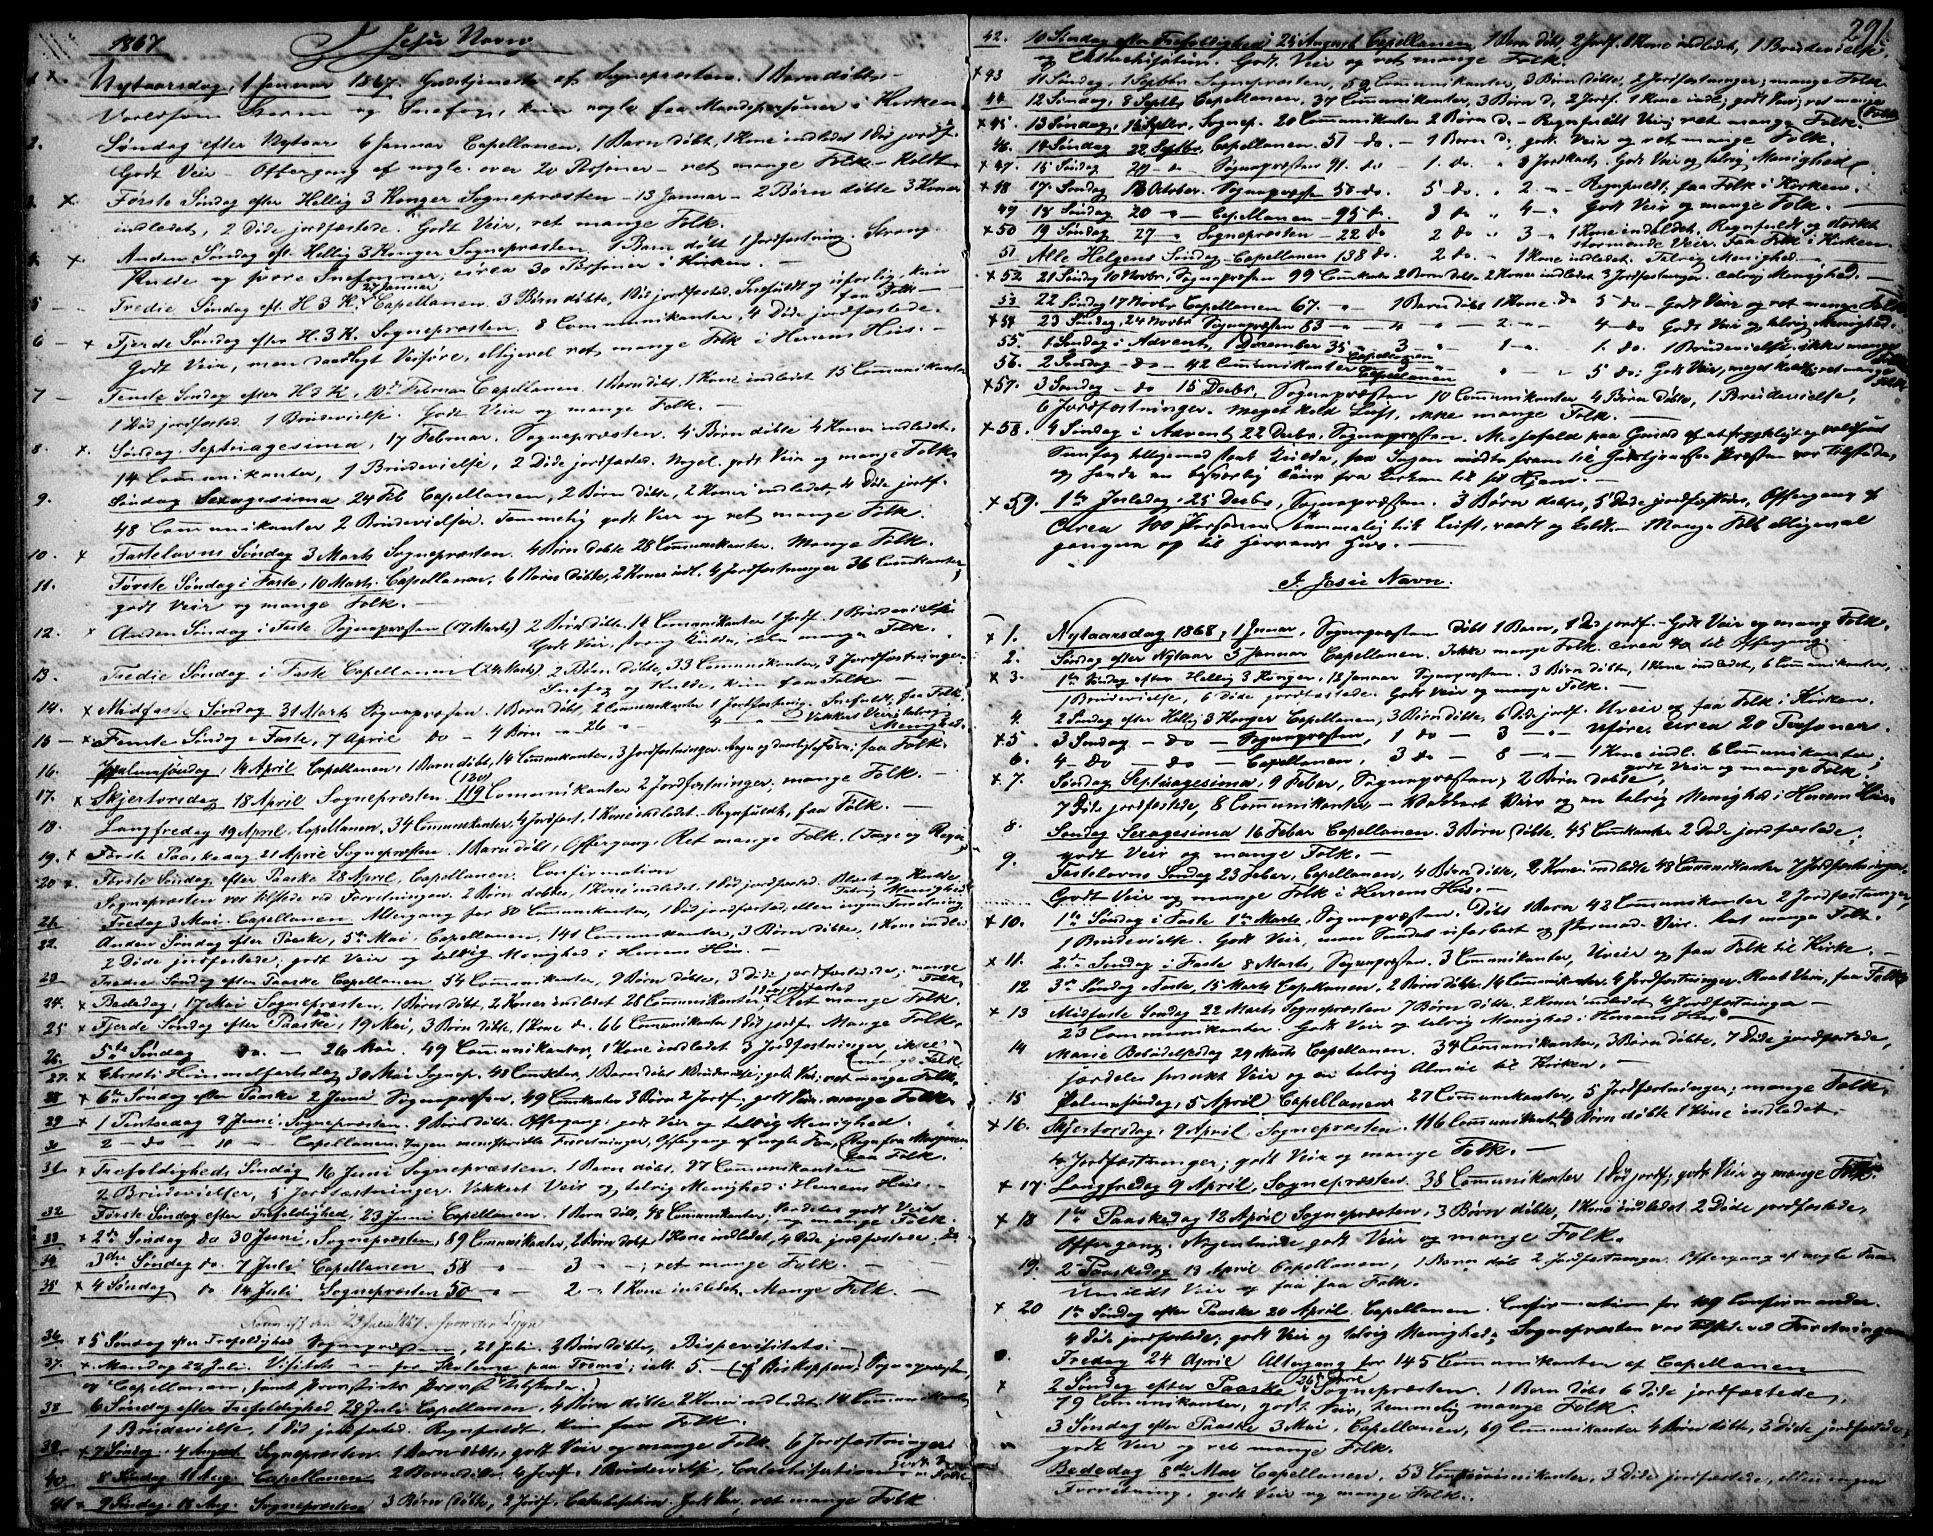 1867 I Jesu Navn
1 x. Nytaarsdag, 1 Januar 1867. Gudstjeneste af Sognepræsten. 1 Barn døbt.
Voldsom Storm og Snefog, kun nogle faa Mandspersoner i Kirken
2. Søndag efter Nytaar 6 Januar Capellanen, 1 Barn døbt, 1 Kone indledet 1 Død jordf.
Godt Veir - Offergang af nogle over 20 Personer - ret mange Folk - Koldt
3. x Første Søndag efter Hellig 3 Konger Sognepræsten - 13 Januar - 2 Børn døbte 3 Koner
indledet, 2 Døde jordfæstede. Godt Veir, ret mange Folk.
4. x Anden Søndag eft. Hellig 3 Konger Sognepræsten, 1 Barn døbt 1 Jordfæstning. Streng
Kulde og svære Snefonner; circa 30 Personer i Kirken.
5 Tredie Søndag eft. H. 3 K. 27 Januar Capellanen. 3 Børn døbte, 1 Død jordfæsted. Snefuldt og uførlig, kun
faa Folk
6 - x Fjerde Søndag efter H. 3 K. Sognepræsten. 8 Communikanter, 4 Døde jordfæstede.
Godt Veir, men daarligt Veiføre, alligevel ret mange Folk i Herrens Huus.
7 - Femte Søndag efter H 3 K, 10de Februar Capellanen. 1 Barn døbt. 1 Kone indledet 15 Communikanter
1 Død jordfæsted. 1 Brudevielse. Godt Veir og mange Folk.
8. x. Søndag Septuagesima, 17 Februar. Sognepræsten. 4 Børn døbte 4 Koner indledet,
14 Communikanter, 1 Brudevielse, 2 Døde jordfæsted. Noget godt Veir og mange Folk.
9. Søndag Sexagesima 24 Feb Capellanen, 2 Børn døbte, 2 Koner indledet, 4 Døde jordf.
48 Communikanter 2 Brudevielser. Temmelig godt Veir og ret mange Folk.
10. x Fastelavns Søndag 3 Marts Sognepræsten. 4 Børn døbte 28 Communikanter. Mange Folk.
11. Første Søndag i Faste, 10 Marts. Capellanen, 6 Børn døbte, 2 Koner indl. 4 Jordfæstninger 36 Comkanter,
godt Veir og mange Folk.
12. x Anden Søndag i Faste Sognepræsten (17 Marts) 2 Børn døbte. 14 Communikanter 1 Jordf. 1 Brudevielse
Godt Veir, streng Kulde, mange Folk.
13. Tredie Søndag i Faste Capellanen (24 Marts) 2 Børn døbte, 33 Communikanter, 3 Jordfæstninger
Snefog og Kulde, kun faa Folk
14. x Midfaste Søndag 31 Marts Sognepræsten. 1 Barn døbt, 2 Communikanter 1 Jordfæstning. Snefuldt, faa Folk
15 - x Femte Søndag i Faste, 7 April do - 4 Børn - 26 - 4 - Vakkert Veir; talrig
Menighed.
16. Palmesøndag, 14 April Capellanen, 1 Barn døbt, 14 Communikanter, 3 Jordfæstninger. Regn og daarligt Føre; faa Folk.
17. x Skjertorsdag 18 April Sognepræsten 119 (120) Communikanter 2 Jordfæstninger, mange Folk.
18. Langfredag 19 April. Capellanen, 34 Communikanter, 4 Jordfæst, 1 Kone indledet. Regnfuldt, faa Folk.
19. x Første Paaskedag 21 April Sognepræsten. 1 Barn døbt, Offergang. Ret mange Folk. (Taage og Regn)
20 x. Første Søndag efter Paaske 28 April, Capellanen. Confirmation
Sognepræsten var tilstede ved Forretningen. 2 Børn døbte, 1 Kone indledet. 1 Død jordfæsted. Blæst og Kulde. Talrig Menighed
21. Fredag 3 Mai. Capellanen Altergang for 80 Communikanter, 1 Død jordfæsted, ellers ingen Forretning.
22. Anden Søndag efter Paaske, 5te Mai. Capellanen, 141 Communikanter, 3 Børn døbte, 1 Kone indledt
2 Døde jordfæstede; godt Veir og talrig Menighed i Herrens Huus.
23 Tredie Søndag efter Paaske Capellanen 54 Communikanter, 9 Børn døbte, 3 Døde jordfæstede; mange
Folk.
24. x Bededag, 17 Mai Sognepræsten, 1 Børn døbt, 2 Koner indledet 28 Communikanter Ret mange Folk.
25 x Fjerde Søndag efter Paaske, 19 Mai, 3 Børn døbte, 1 Kone do. 66 Communikanter 1 Død jordf. Mange Folk.
26. 5te Søndag do. - 26 Mai. 49 Communikanter, 1 Kone indledet 3 Jordfæstninger, ikke
mange Folk
27. x Christi Himmelfartsdag 30 Mai Sognep. 48 Comkter, 1 Barn døbt 1 Brudevielse; godt Veir; ret mange Folk.
28 x 6te Søndag efter Paaske 2 Juni Sognepræsten, 49 Comkanter 3 Børn 2 Jordf. godt Veir, mange Folk.
29 x 1 Pintsedag 9 Juni, Sognepræsten. 9 Børn døbte. Offergang, godt Veir og talrig Menighed.
30 2 - do - 10 - Capellanen. Ingen Forretninger, Offergang af nogle Faa, Regn fra Morgenen
faa Folk.
31 x Trefoldigheds Søndag 16 Juni Sognepræsten. 1 Barn døbt, 97 Communikanter
2 Brudevielser, 5 Jordfæstninger. Vakkert Veir og talrig Menighed i Herrens Huus.
32 Første Søndag efter Trefoldighed, 23 Juni Capellanen. 1 Barn døbt, 48 Communikanter, særdeles godt Veir
og mange Folk.
33 x 2den Søndag do 30 Juni, Sognepræsten, 89 Communikanter, 2 Børn døbt 1 Kone indledet, 4 Døde jordfæstede. do
34 3die Søndag do. 7 Juli Capellanen 58 - 3 - ; ret mange Folk.
35 x 4 Søndag do 14 Juli Sognepræsten 50 - 2 - 1 Kone indledet, Mange Folk.
36 x 5 Søndag efter Trefoldighed Sognepræsten, 21 Juli. 3 Børn døbte, Bispevisitats.
37. x. Mandag 22 Juli. Visitats for Skolerne paa Tromsø; ialt 5. (af Biskoppen, Sognepræsten,
og Capellanen, samt Provstiets Provst tilstede.)
38 6 Søndag efter Trefoldighed 28 Juli Capellanen, 4 Børn døbte 2 Koner indledet. 14 Communikanter,
1 Brudevielse, 1 Død jordfæsted. Regnfuldt, kun faa Folk.
39 x 7 Søndag 4 August Sognepræsten. 1 Barn døbt, godt Veir og mange Folk. 6 Jordfæstninger
40 8 Søndag 11 Aug Capellanen 2 Børn døbte. 4 Jordf. 1 Brudevielse, Catechisation godt V.
m. Folk
41 x 9 Søndag. 18 Aug. Sognepræsten 3 Børn døbte, 2 Jordf. Catechisation. Godt Veir, ret mange Folk
291.
42. 10 Søndag efter Trefoldighed 25 August Capellanen, 1 Barn døbt, 2 Jordf. 1 Kone indledet, 1 Brudevielse
og Catechisation. Godt Veir og ret mange Folk.
x 43 11 Søndag, 1 Septbr Sognepræsten, 52 Communikanter, 3 Børn døbte, 2 Jordfæstninger; mange Folk
44 12 Søndag, 8 Septbr Capellanen, 37 Communikanter, 3 Børn d, 2 Jordf. 1 Kone indl; godt Veir; ret mange
Folk
x 45. 13 Søndag, 15 Septbr, Sognep. 20 Communikanter 2 Børn d. - Regnfuldt Veir; ret mange Folk.
46. 14 Søndag 22 Septbr, Capellanen. 51 do. - 1 Barn d. godt Veir og ret mange Folk.
x 47. 15 Søndag 29 - do - Sognepræsten 91. do 1. do. 3 Jordfæst. Godt Veir og talrig Menighed.
x 48 17. Søndag 13 October. Sognepræst 50 do. 5 do. 2 - Regnfuldt, faa Folk i Kirken.
49 18 Søndag 20 - Capellanen - 95 do. 3 do 4 - Godt Veir og mange Folk.
x 50 19 Søndag 27 - Sognepræsten - 22 do 2 do 3 - 1 Kone indledet. Regnfuldt og stærkt
stormende Veir. Faa Folk i Kirken
51 Alle Helgens Søndag - Capellanen 138 do. 2 do. - 1 Kone indledet. Talrig Menighed.
x 52. 21 Søndag 10 Novbr, Sognepræsten 99 Comkanter 2 Børn døbte 2 Koner indledet 3 Jordfæstninger. talrig Menighed.
53 22 Søndag 17 Novbr Capellanen 67. - 1 Barn døbt 1 Kone do 5 do - Godt Veir og ret mange Folk
x 54 23 Søndag, 24 Novbr Sognepræsten 83 - 4 - 2 - 4 do Godt Veir og talrig Menighed.
55. 1 Søndag i Advent, 1 December 35 - 3 - 1 - 1. do. 1 Brudevielse. ikke mange
Folk
56. 2 Søndag - do - 42 Communikanter Capellanen - 5 do: Godt Veir, meget koldt; ret mange
Folk
x 57. 3 Søndag - do 15 Decbr. Sognepræsten 10 Communikanter 4 Børn døbte, 1 Brudevielse,
6 Jordfæstninger. Meget kold Luft, ikke mange Folk.
x 58. 4 Søndag i Advent 22 Decbr. Sognepræsten. Messefald paa Grund af et frygteligt og voldsomt
Snefog tilligemed stærk Kulde, saa Ingen mødte frem til Gudstjenesten Præsten var tilstede,
og havde en besværlig fra Kirken til sit Hjem.
x 59. 1te Juledag, 25 Decbr, Sognepræsten. 3 Børn døbte, 5 Døde jordfæstede, Offergang af
Circa 100 Personer Luft, raadt og koldt. - Mange Folk alligevel
gangne op til Herrens Huus.
I Jesu Navn.
x 1. Nytaarsdag 1868, 1 Januar, Sognepræsten døbt 1 Barn, 1 Død jordf. - Godt Veir og mang Folk.
2. Søndag efter Nytaar 5 Januar Capellanen. Ikke mange Folk. circa 40 til Offergang.
x 3. 1te Søndag efter Hellig 3 Konger, 12 Januar Sognepræsten. 3 Børn døbte, 1 Kone indledet, 6 Communikanter,
1 Brudevielse, 6 Døde jordfæstede. Godt Veir og mange Folk.
4. 2 Søndag efter Hellig 3 Konger Capellanen, 3 Børn døbte, 6 Døde jordf. Uveir og faa Folk i Kirken.
x 5. 3 Søndag - do - Sognepræsten, 1 do - 3 - Uføre. circa 20 Personer.
6. 4 - do - do - Capellanen, 3 do - 8 - 1 Kone indl. 6 Communikanter;
godt Veir og mange Folk.
x 7. Søndag Septuagesima, 9 Febr, Sognepræsten, 2 Børn døbte,
7 Døde jordfæstede, 8 Communikanter - Vakkert Veir og en talrig Menighed i Herrens Huus.
8. Søndag Sexagesima 16 Febar Capellanen. 3 Børn døbte, 45 Comkanter 2 Døde jordfæstede;
godt Veir og mange Folk.
9. Fastelavns Søndag 23 Febr, Capellanen, 4 Børn døbte, 2 Koner indledte 48 Communikanter 7 Jordfæstninger.
Godt Veir og mange Folk i Herrens Huus.
x 10. 1te Søndag i Faste 1te Marts, Sognepræsten. Døbt 1 Barn 42 Communikanter 2 Jordfæstninger,
1 Brudevielse. Godt Veir, men ufarbart og stormed. Veir. Ret mange Folk.
x 11. 2den Søndag i Faste 8 Marts, Sognepræsten. 3 Communikanter, Uveir og faa Folk til Kirke.
12 3die Søndag i Faste, 15 Marts Capellanen, 2 Børn døbte. 14 Communikanter, 4 Jordfæstninger. Raat Veir, faa Folk
x 13 Midfaste Søndag 22 Marts Sognepræsten 7 Børn døbte, 2 Koner indledet, 4 Jordfæstninger
23 Communikanter. Godt Veir og talrig Menighed i Herrens Huus
14 Mariæ Bebudelsesdag 29 Marts Capellanen. 34 Communikanter, 3 Børn døbte, 7 Døde jordfæstede,
særdeles smukt Veir og en talrig Almue til Kirken.
15 Palmesøndag, 5 April Capellanen 27 Communikanter, 5 Jordfæstninger; mange Folk.
x 16. Skjertorsdag, 9 April. Sognepræsten. 116 Communikanter 4 Børn døbte 1 Kone indledet.
4 Jordfæstninger; godt Veir og mange Folk.
x 17 Langfredag 9 April, Sognepræsten. 38 Communikanter 1 Død jordf; godt Veir og mange Folk.
x 18 1te Paaskedag 12 April Sognepræsten, 3 Børn døbte, 1 Kone indledet 2 Døde jordfæstede,
Offergang. Nogenlunde godt Veir og mange Folk.
19. 2 Paaskedag 13 April Capellanen, 1 Barn døbt 2 Jordfæstninger. Offergang af nogle Faa
Umildt Veir og faa Folk.
x 20 1te Søndag efter Paaske 20 April. Capellanen. Confirmation for 109 Confirmander.
4 Døde jordfæstede; godt Veir og talrig Menighed; Sognepræsten var tilstede ved Forretningen
Fredag 24 April Altergang for 145 Communikanter af Capellanen
x 2 Søndag efter Paaske 26 April Sognepræsten. 1 Barn døbt 6 Døde jordfæstede,
79 Communikanter, godt Veir, temmelig mange Folk.
3 Søndag efter Paaske 3 Mai, Capellanen, 69 Communikanter 4 Børn døbte, 3 Døde jordfæstede,
godt Veir og ret mange Folk.
Bededag 8de Mai Capellanen, 53 Communikanter, 3 Døde jordfæstede, ellers ingen
Forretning, godt Veir og mange Folk.